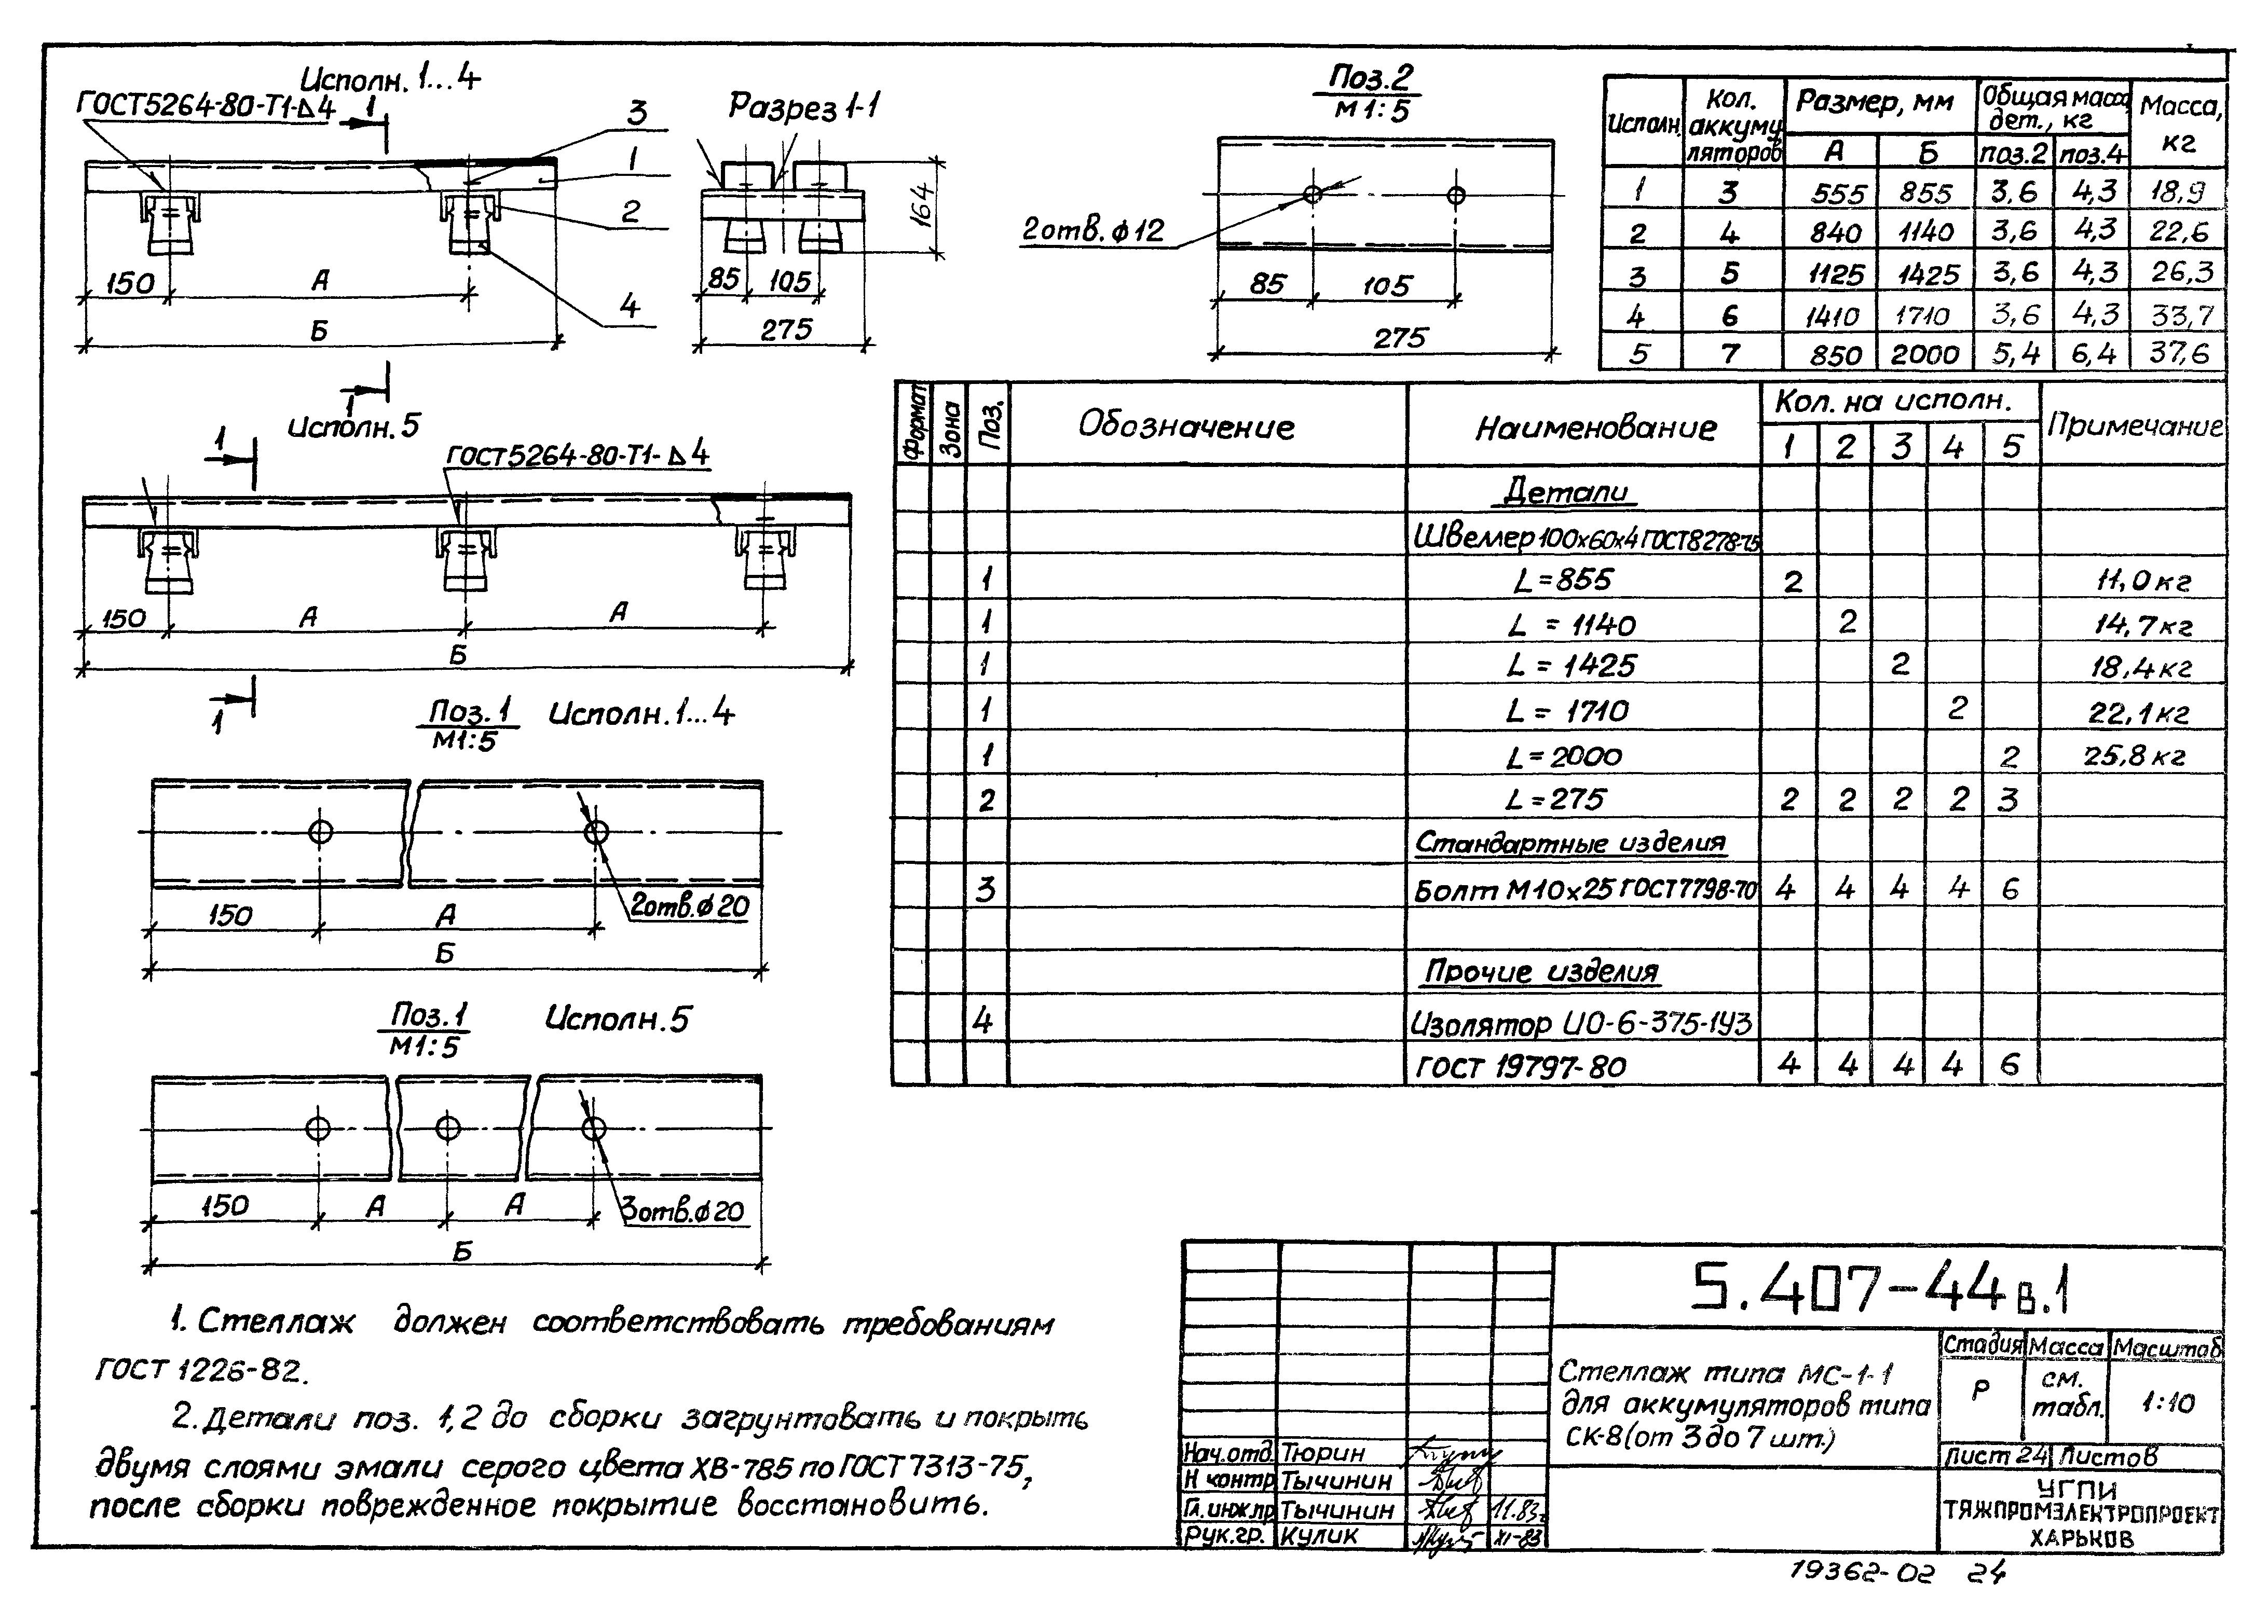 Исполн. 1...4
ГОСТ5264-80-Т1-Δ4
1
3
1
2
4
150
А
Б
1
Разрез 1-1
164
85
105
275
Поз.2
М1:5
2отв. ϕ12
85
105
275
Исполн.
Кол. аккумуляторов
Размер, мм
Общая масса дет., кг
Масса, кг
А
Б
поз.2
поз.4
1 3 555 855 3,6 4,3 18,9
2 4 840 1140 3,6 4,3 22,6
3 5 1125 1425 3,6 4,3 26,3
4 6 1410 1710 3,6 4,3 33,7
5 7 850 2000 5,4 6,4 37,6
Исполн. 5
1
ГОСТ5264-80-Т1-Δ4
150
А
А
Б
1
Поз.1
М1:5
Исполн.1...4
2отв.ϕ20
150
А
Б
Поз.1
М1:5
Исполн.5
3отв.ϕ20
150
А
А
Б
Формат
Зона
Поз.
Обозначение
Наименование
Кол. на исполн.
Примечание
1 2 3 4 5
Детали
Швеллер 100х60х4 ГОСТ8278-75
1 L=855 2 11,0кг
1 L = 1140 2 14,7кг
1 L = 1425 2 18,4кг
1 L = 1710 2 22,1кг
1 L=2000 2 25,8кг
2 L=275 2 2 2 2 3
Стандартные изделия
3 Болт М10х25 ГОСТ7798-70 4 4 4 4 6
Прочие изделия
4 Изолятор ИО-6-375-1У3
ГОСТ 19797-80 4 4 4 4 6
1. Стеллаж должен соответствовать требованиям
ГОСТ 1226-82.
2. Детали поз. 1,2 до сборки загрунтовать и покрыть
двумя слоями эмали серого цвета ХВ-785 по ГОСТ7313-75,
после сборки поврежденное покрытие восстановить.
5.407-44 в.1
Стеллаж типа МС-1-1
для аккумуляторов типа
СК-8(от 3 до 7 шт.)
Стадия Масса Масштаб
Р
см. табл.
1:10
Лист 24 Листов
УГПИ
ТЯЖПРОМЭЛЕКТРОПРОЕКТ
ХАРЬКОВ
Нач.отд. Тюрин
Н контр Тычинин
Гл.инж.пр Тычинин 11.83г
Рук.гр. Кулик XI-83
19362-02 24